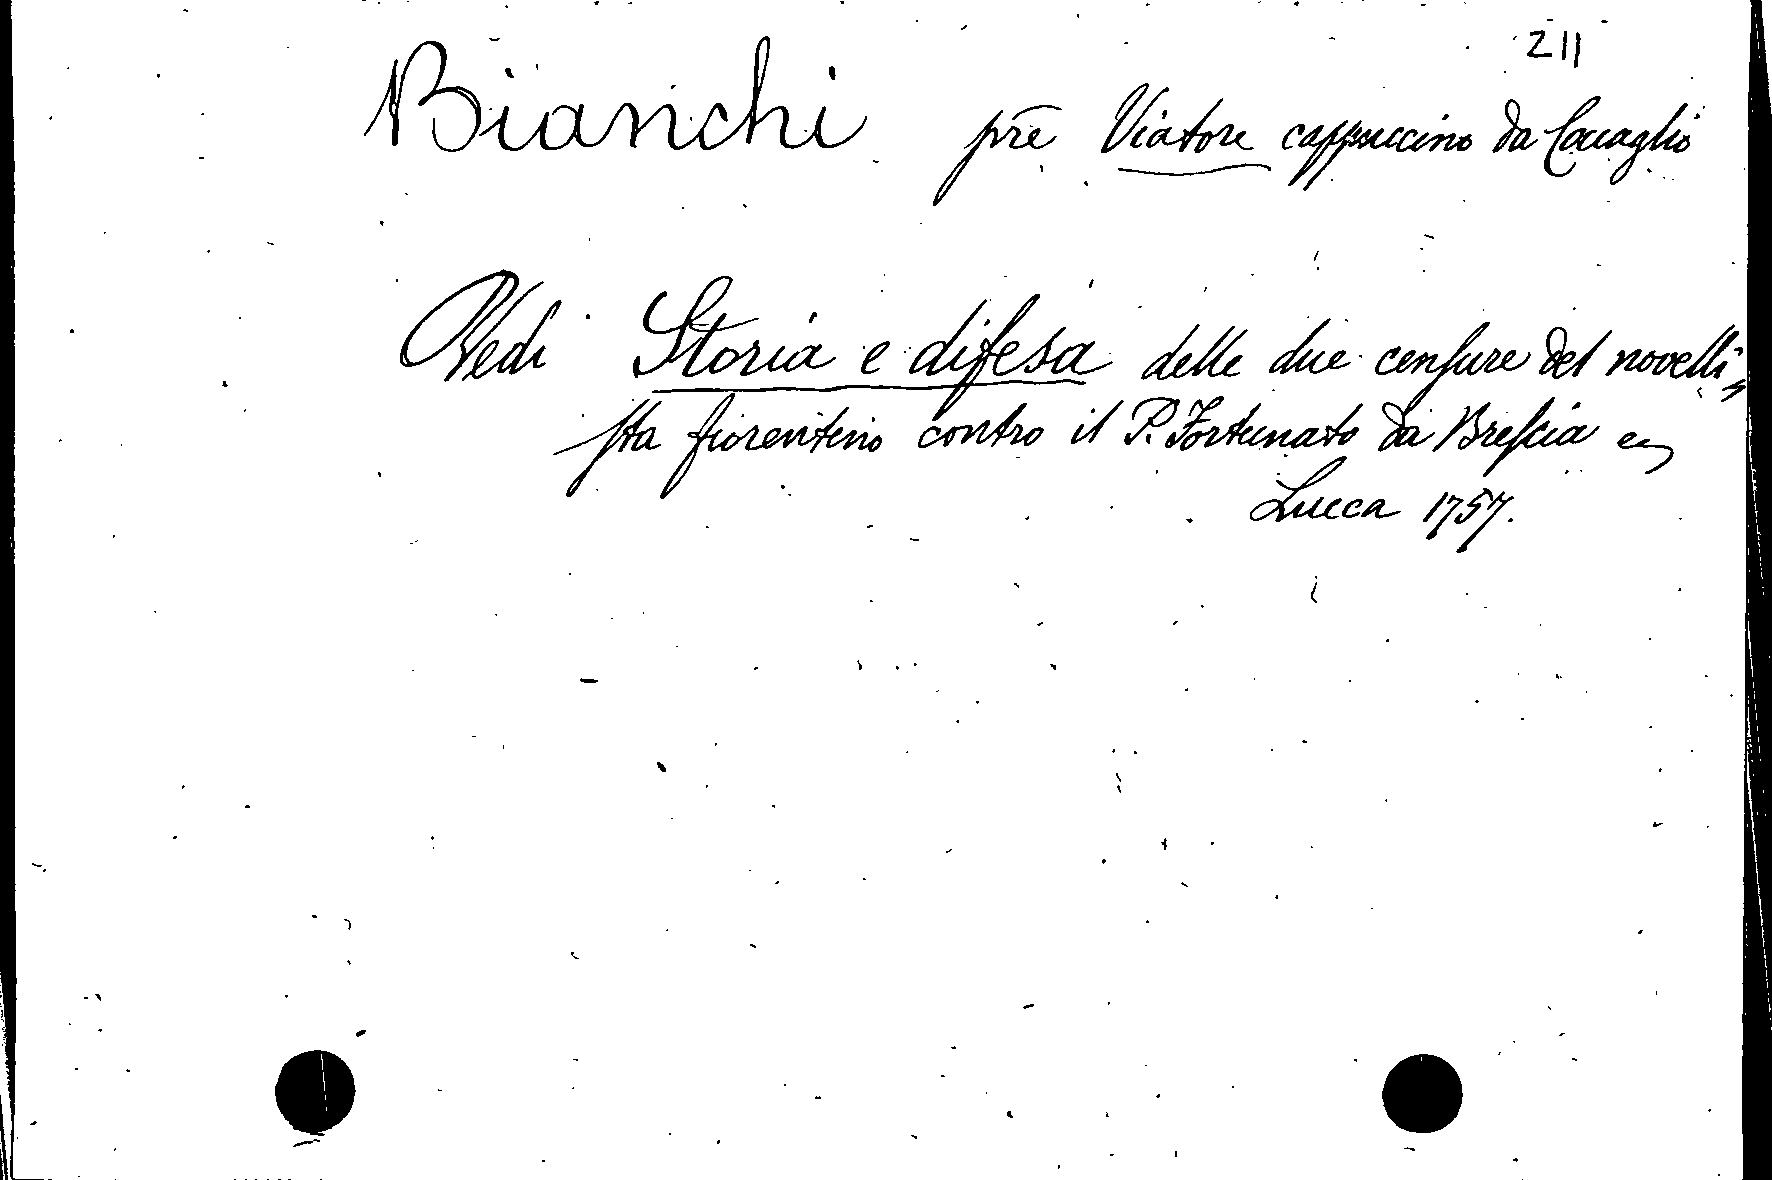 211
Bianchi prē Viatore cappuccino da Cocaglio
Vedi Storia e difesa delle due censure del novelli=
sta fiorentino contro il P. Fortunato da Brescia
Lucca 1757.